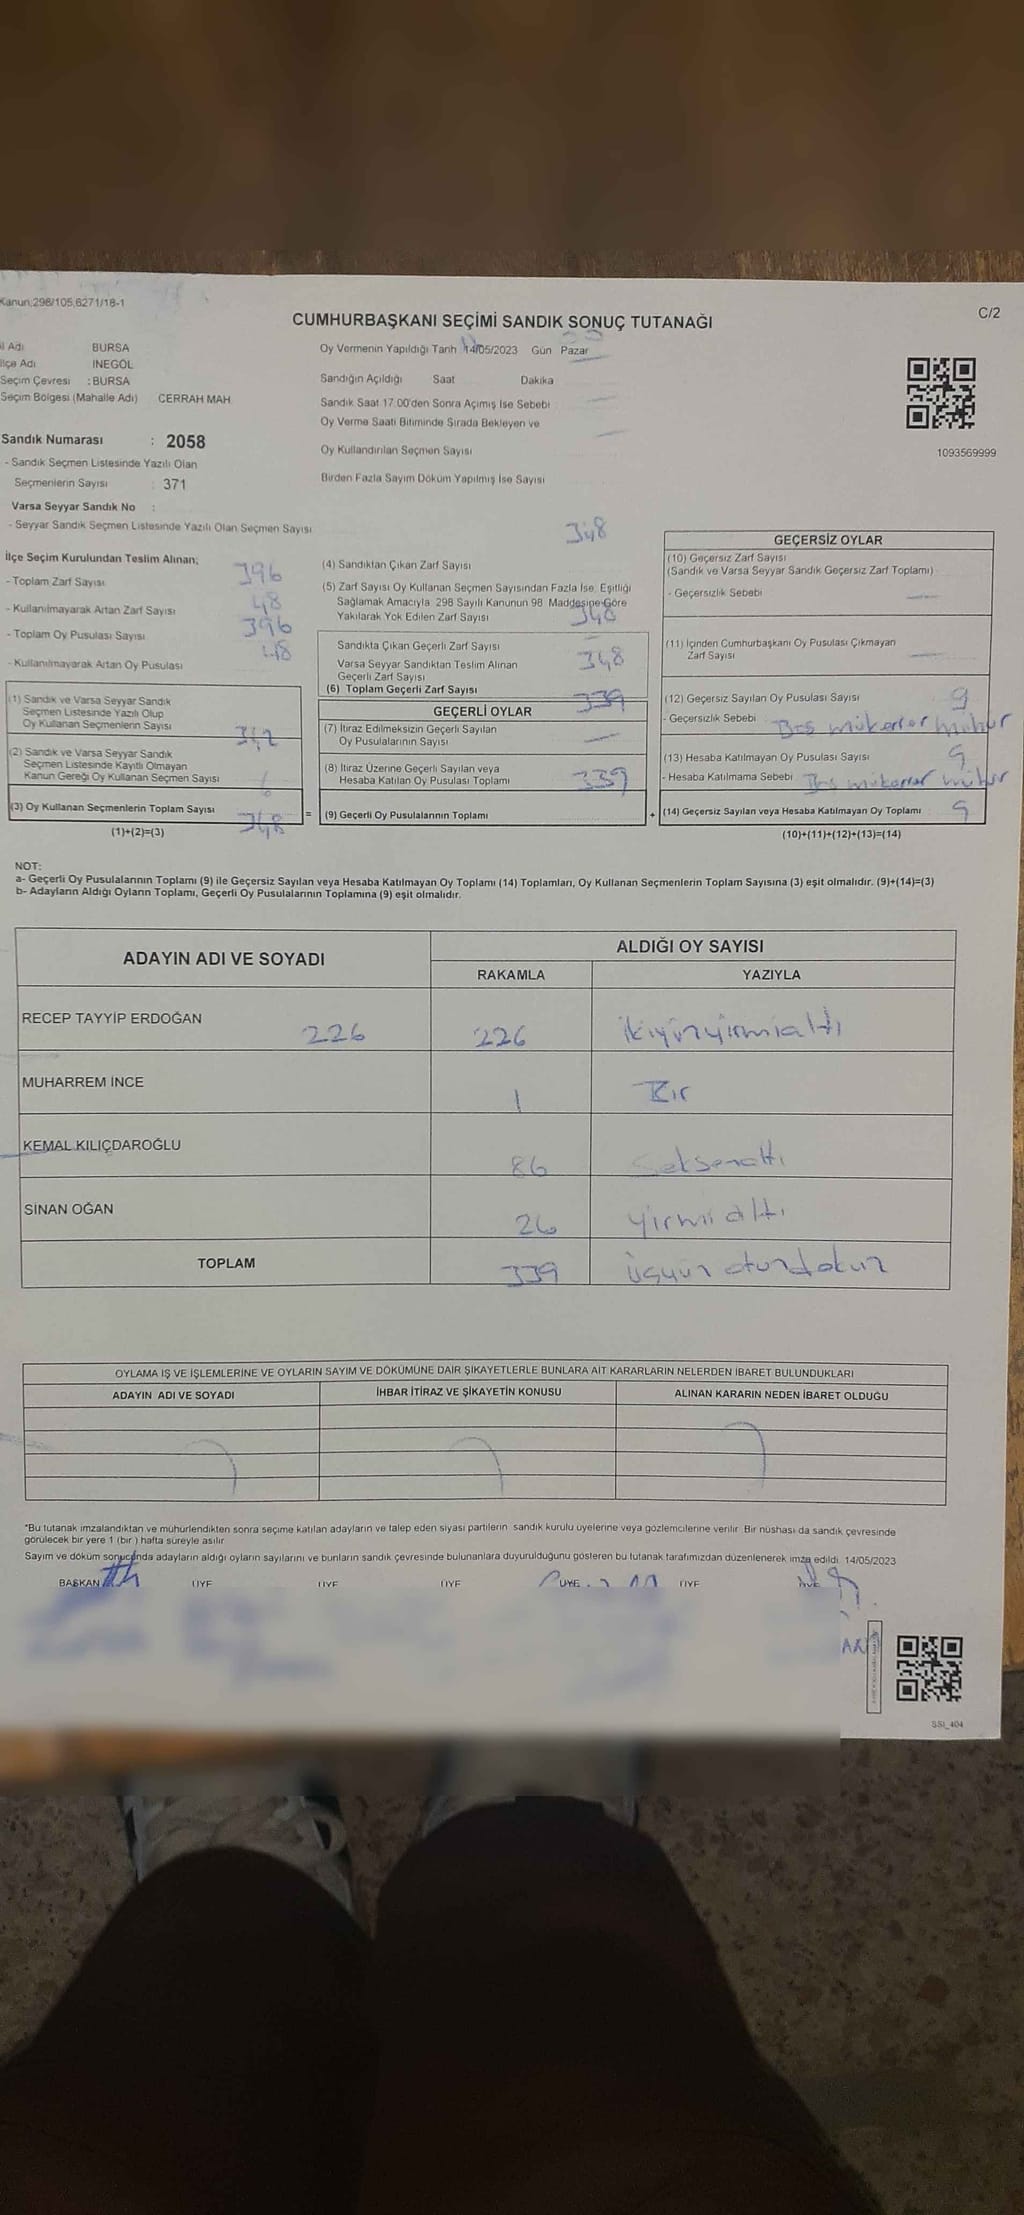 Kanun;298/105,6271/18-1
C/2
CUMHURBAŞKANI SEÇİMİ SANDIK SONUÇ TUTANAĞI
l Adı BURSA
İlçe Adı İNEGÖL
Seçim Çevresi : BURSA
Seçim Bölgesi (Mahalle Adı) CERRAH MAH.
Sandık Numarası : 2058
- Sandık Seçmen Listesinde Yazılı Olan
Seçmenlerin Sayısı : 371
Varsa Seyyar Sandık No :
- Seyyar Sandık Seçmen Listesinde Yazılı Olan Seçmen Sayısı
Oy Vermenin Yapıldığı Tarih 14/05/2023 Gün Pazar
Sandığın Açıldığı Saat Dakika
Sandık Saat 17.00'den Sonra Açımış İse Sebebi
Oy Verme Saati Bitiminde Sırada Bekleyen ve
Oy Kullandırılan Seçmen Sayısı
Birden Fazla Sayım Döküm Yapılmış İse Sayısı
1093569999
İlçe Seçim Kurulundan Teslim Alınan;
- Toplam Zarf Sayısı 396
- Kullanılmayarak Artan Zarf Sayısı 48
- Toplam Oy Pusulası Sayısı 396
- Kullanılmayarak Artan Oy Pusulası 48
(1) Sandık ve Varsa Seyyar Sandık
Seçmen Listesinde Yazılı Olup
Oy Kullanan Seçmenlerin Sayısı 342
(2) Sandık ve Varsa Seyyar Sandık
Seçmen Listesinde Kayıtlı Olmayan
Kanun Gereği Oy Kullanan Seçmen Sayısı 6
(3) Oy Kullanan Seçmenlerin Toplam Sayısı 348
(1)+(2)=(3)
(4) Sandıktan Çıkan Zarf Sayısı 348
(5) Zarf Sayısı Oy Kullanan Seçmen Sayısından Fazla İse; Eşitliği
Sağlamak Amacıyla 298 Sayılı Kanunun 98. Maddesine Göre
Yakılarak Yok Edilen Zarf Sayısı
Sandıkta Çıkan Geçerli Zarf Sayısı 348
Varsa Seyyar Sandıktan Teslim Alınan
Geçerli Zarf Sayısı
(6) Toplam Geçerli Zarf Sayısı 348
GEÇERLİ OYLAR
(7) İtiraz Edilmeksizin Geçerli Sayılan
Oy Pusulalarının Sayısı 339
(8) İtiraz Üzerine Geçerli Sayılan veya
Hesaba Katılan Oy Pusulası Toplamı
= (9) Geçerli Oy Pusulalarının Toplamı 339
GEÇERSİZ OYLAR
(10) Geçersiz Zarf Sayısı
(Sandık ve Varsa Seyyar Sandık Geçersiz Zarf Toplamı)
- Geçersizlik Sebebi
(11) İçinden Cumhurbaşkanı Oy Pusulası Çıkmayan
Zarf Sayısı
(12) Geçersiz Sayılan Oy Pusulası Sayısı 9
- Geçersizlik Sebebi Boş mükerrer mühür
(13) Hesaba Katılmayan Oy Pusulası Sayısı 9
- Hesaba Katılmama Sebebi Boş mükerrer mühür
+ (14) Geçersiz Sayılan veya Hesaba Katılmayan Oy Toplamı 9
(10)+(11)+(12)+(13)=(14)
NOT:
a- Geçerli Oy Pusulalarının Toplamı (9) ile Geçersiz Sayılan veya Hesaba Katılmayan Oy Toplamı (14) Toplamları, Oy Kullanan Seçmenlerin Toplam Sayısına (3) eşit olmalıdır. (9)+(14)=(3)
b- Adayların Aldığı Oyların Toplamı, Geçerli Oy Pusulalarının Toplamına (9) eşit olmalıdır.
ADAYIN ADI VE SOYADI ALDIĞI OY SAYISI
RAKAMLA YAZIYLA
RECEP TAYYİP ERDOĞAN 226 226 ikiyüzyirmialtı
MUHARREM İNCE 1 Bir
KEMAL KILIÇDAROĞLU 86 Seksenaltı
SİNAN OĞAN 26 yirmialtı
TOPLAM 339 üçyüzotuzdokuz
OYLAMA İŞ VE İŞLEMLERİNE VE OYLARIN SAYIM VE DÖKÜMÜNE DAİR ŞİKAYETLERLE BUNLARA AİT KARARLARIN NELERDEN İBARET BULUNDUKLARI
ADAYIN ADI VE SOYADI İHBAR İTİRAZ VE ŞİKAYETİN KONUSU ALINAN KARARIN NEDEN İBARET OLDUĞU
*Bu tutanak imzalandıktan ve mühürlendikten sonra seçime katılan adayların ve talep eden siyasi partilerin sandık kurulu üyelerine veya gözlemcilerine verilir. Bir nüshası da sandık çevresinde
görülecek bir yere 1 (bir ) hafta süreyle asılır
Sayım ve döküm sonucunda adayların aldığı oyların sayılarını ve bunların sandık çevresinde bulunanlara duyurulduğunu gösteren bu tutanak tarafımızdan düzenlenerek imza edildi. 14/05/2023
BAŞKAN ÜYE ÜYE ÜYE ÜYE ÜYE ÜYE
SSI_404